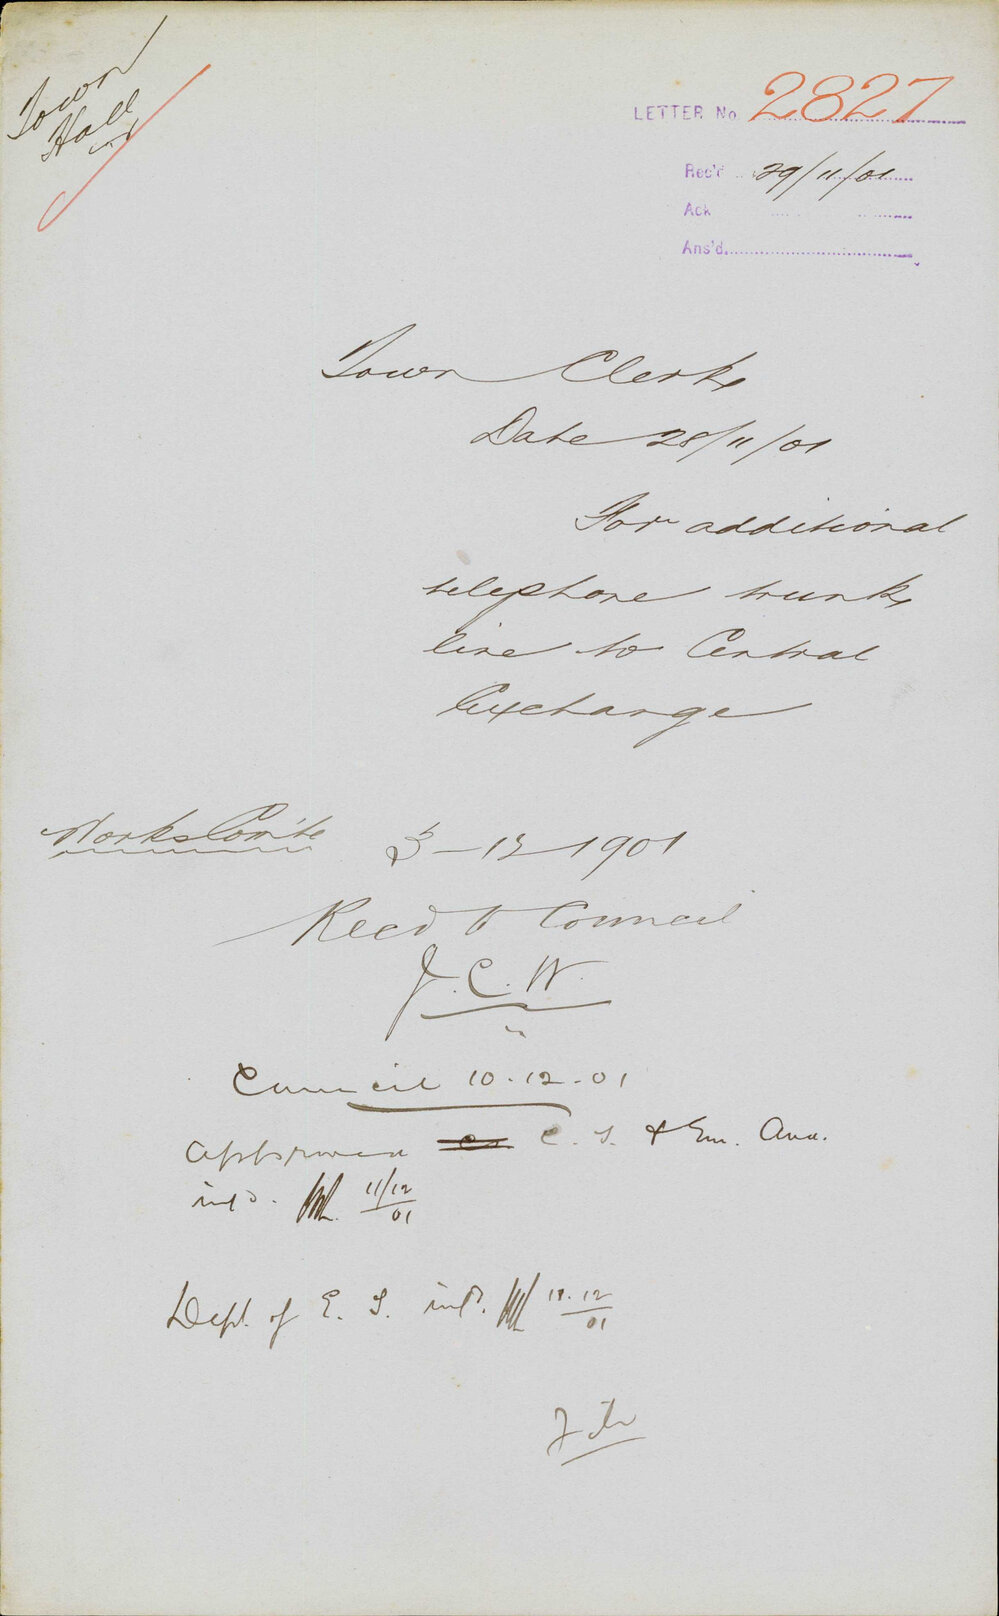 Town
Hall
LETTER No 2827
Rec'd 29/11/01
Ack
Ans'd
Town Clerk
Date 28/11/01
For additional
telephone trunk
line to Central
Exchange
Works Com'te 3-12-1901
Recd to Council
J.C.W.
Council 10.12.01
Approved C. S. & Em. Ava.
inf'd. 11/12/01
Dept. of E. S. inf'd. 12/01
File